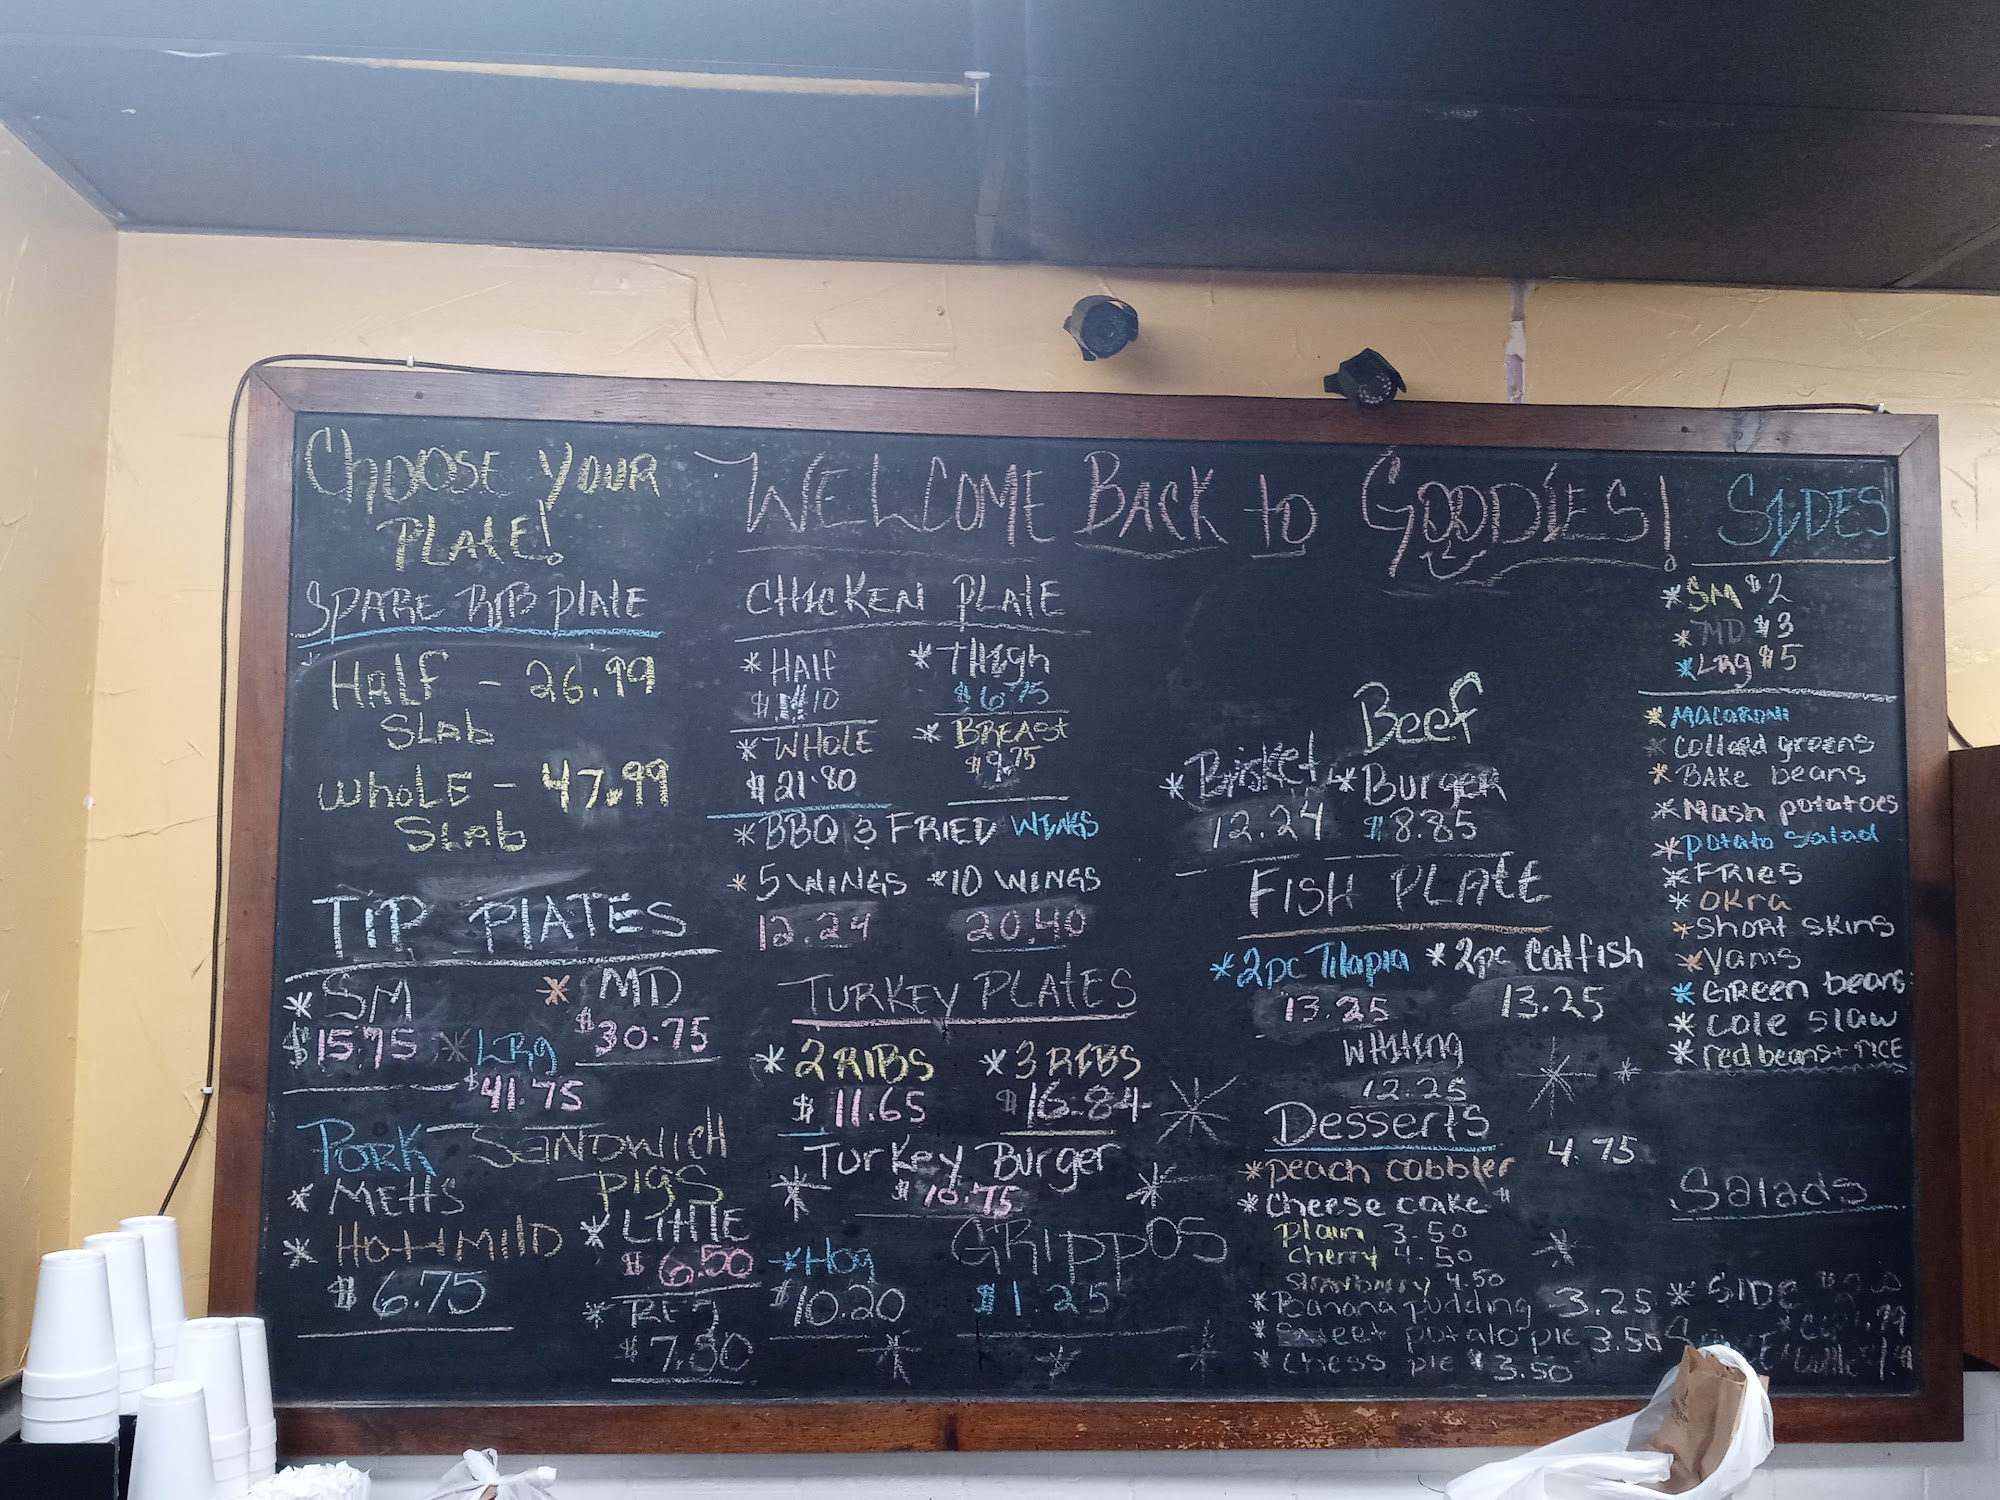 CHOOSE YOUR
PLATE!
SPARE RIB PLATE
HALF - 26.99
SLAB
WHOLE - 47.99
SLAB
TIP PLATES
* SM
$15.75
* MD
$30.75
* LRg
$41.75
PORK SANDWICH
* METTS
* HOT + MILD
$6.75
PIGS
* LITTLE
$6.50
* REG
$7.50
* Hog
$10.20
WELCOME BACK to GOODIES!
CHICKEN PLATE
* HALF
* THIGH
$6.75
* WHOLE
$21.80
* BREAST
$9.75
* BBQ & FRIED WINGS
* 5 WINGS * 10 WINGS
12.24 20.40
TURKEY PLATES
* 2 RIBS * 3 RIBS
$11.65 $16.84
Turkey Burger
$10.75
GRIPPOS
$1.25
Beef
* Brisket * Burger
12.24 $8.85
FISH PLATE
* 2pc Tilapia * 2pc Catfish
13.25 13.25
Whiting
12.25
Desserts
* peach cobbler 4.75
* Cheese cake
Plain 3.50
Cherry 4.50
Strawberry 4.50
* Banana pudding 3.25
* Sweet potato pie 3.50
* Chess pie $3.50
SIDES
* SM $2
* MD $3
* LRg $5
* MACARONI
* Collard greens
* BAKe beans
* Mash potatoes
* potato salad
* FRIES
* OKra
* Short skins
* Yams
* GREEN beans
* Cole slaw
* red beans + rICE
Salads
* SIDE